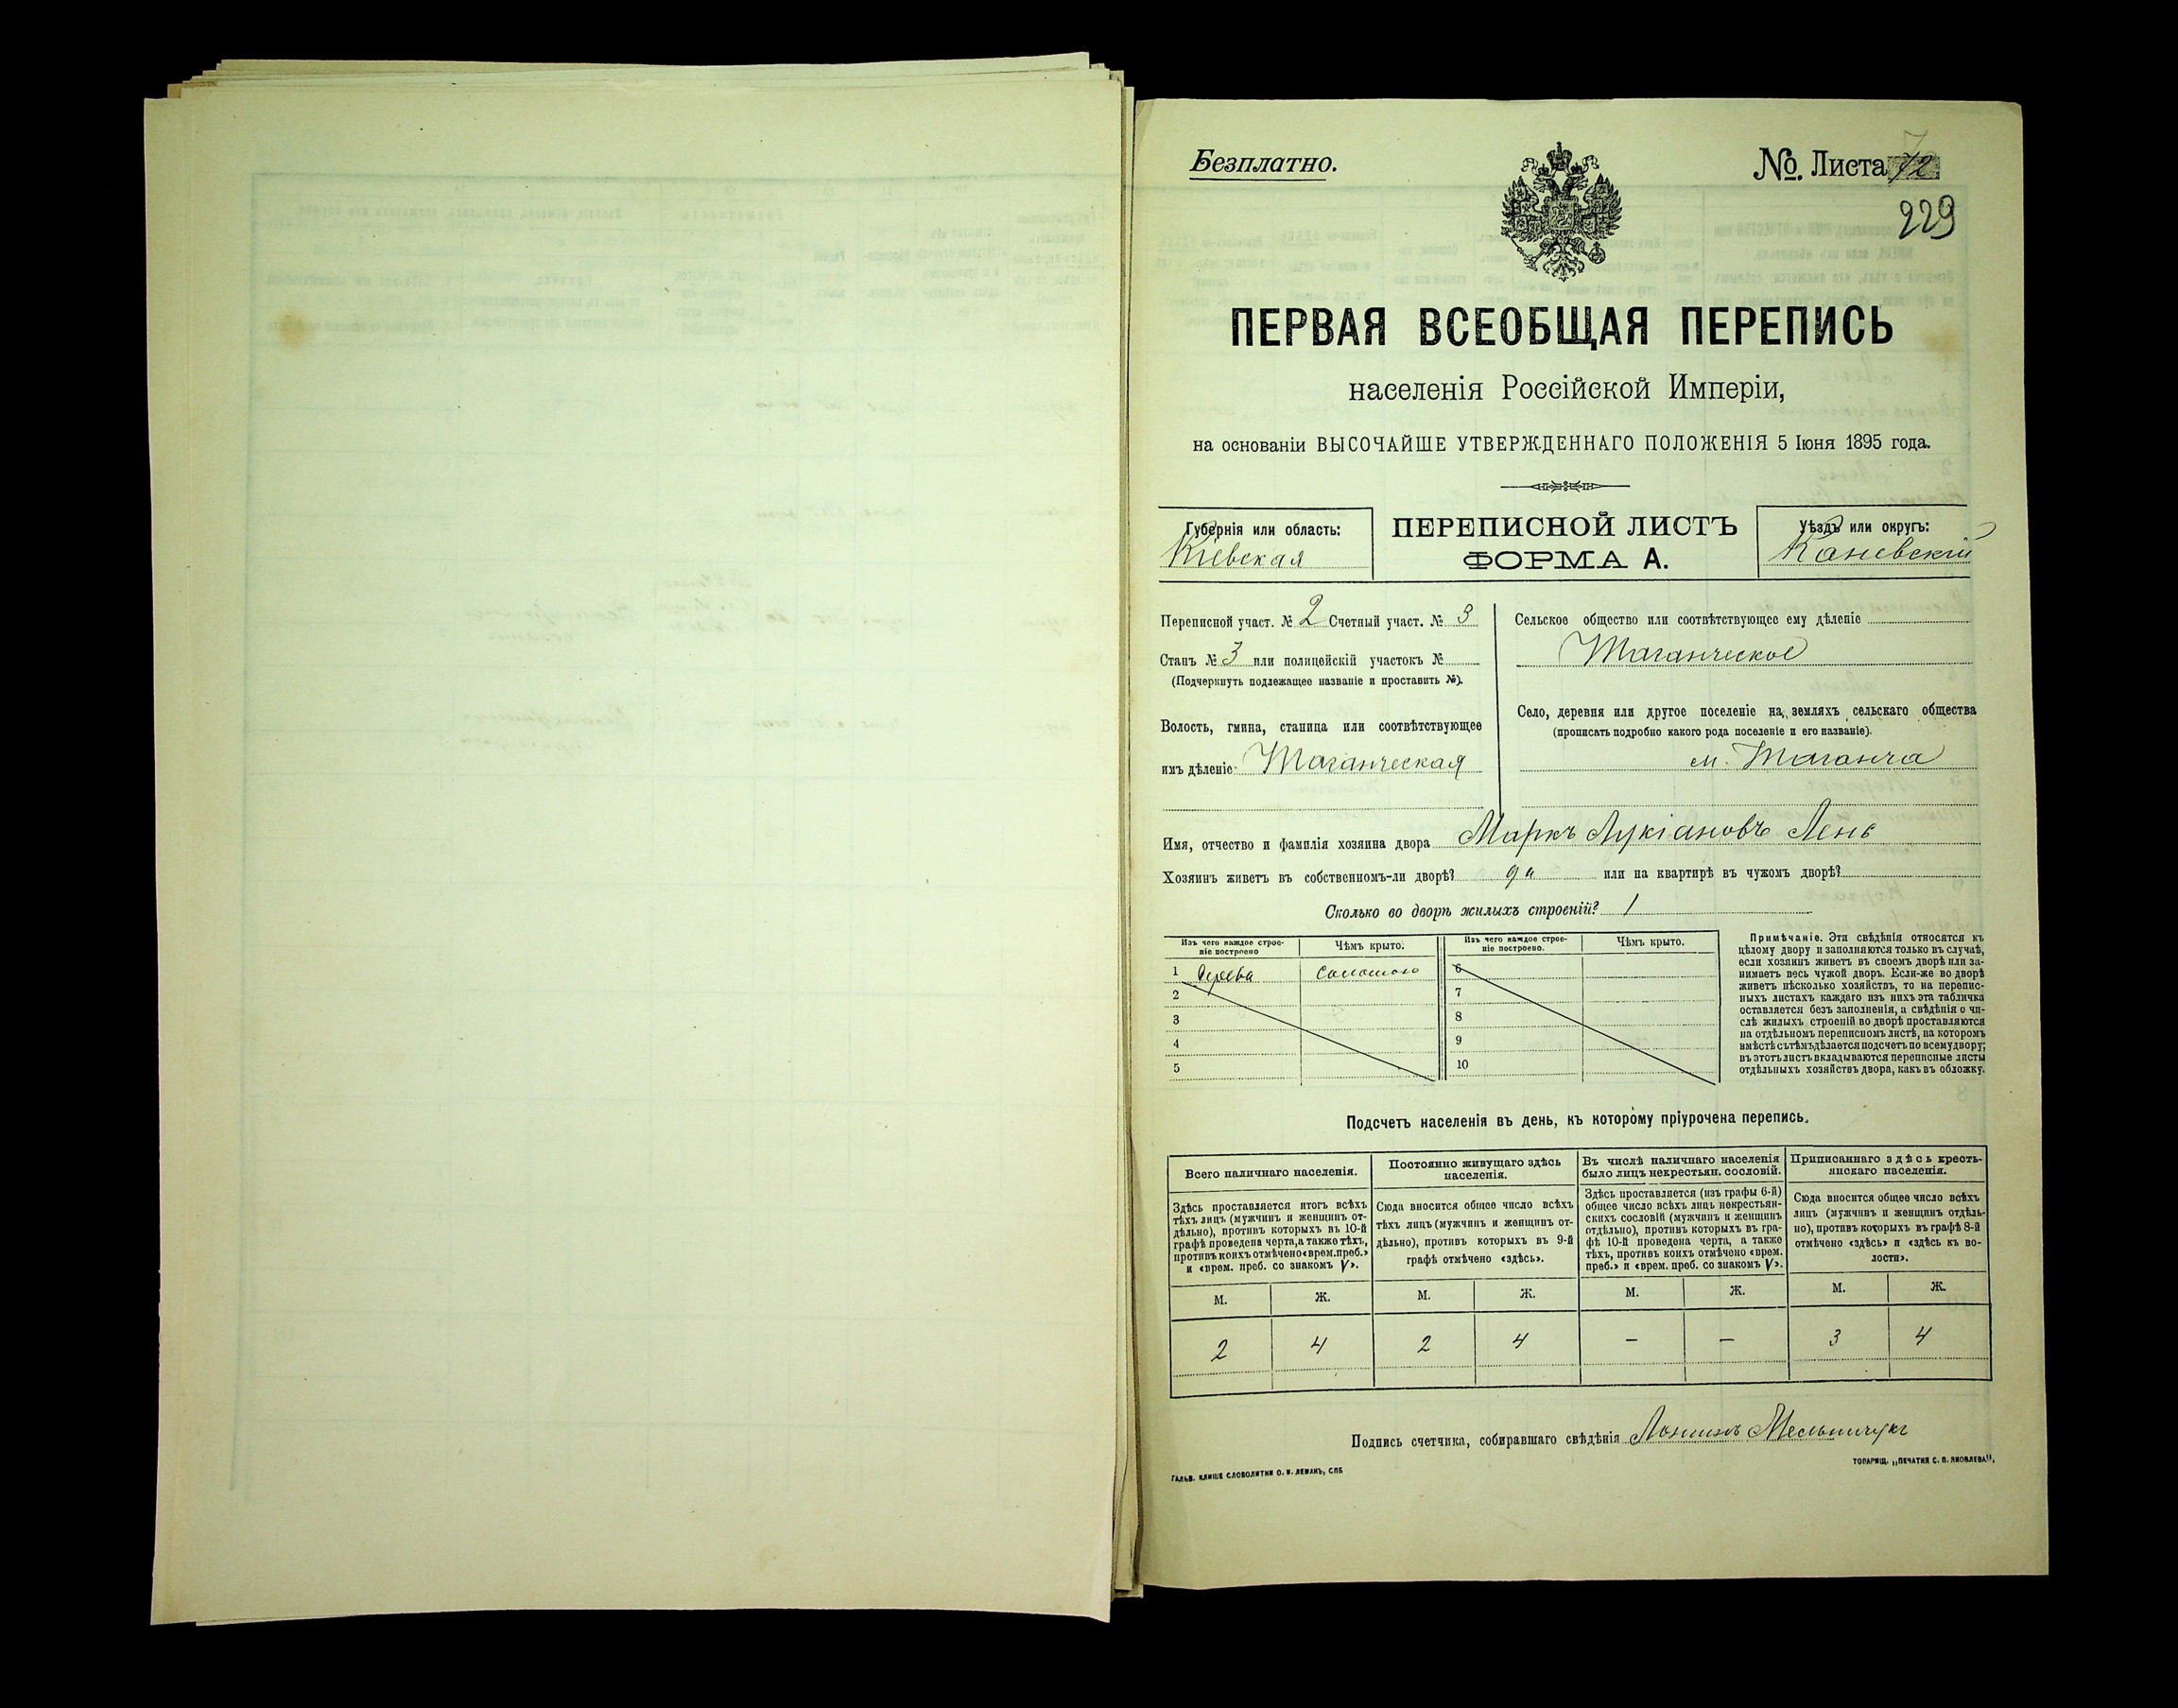 Безплатно.
№ Листа 72
229
ПЕРВАЯ ВСЕОБЩАЯ ПЕРЕПИСЬ
населенія Россійской Имперіи,
на основаніи ВЫСОЧАЙШЕ УТВЕРЖДЕННАГО ПОЛОЖЕНІЯ 5 Іюня 1895 года.
Губернія или область:
Кіевская
ПЕРЕПИСНОЙ ЛИСТЪ
ФОРМА А.
Уѣздъ или округъ:
Каневскій
Переписной участ. № 2 Счетный участ. № 3
Станъ № 3 или полицейскій участокъ №
(Подчеркнуть подлежащее названіе и проставить №).
Волость, гмина, станица или соотвѣтствующее
имъ дѣленіе Таганческая
Сельское общество или соотвѣтствующее ему дѣленіе
Таганческое
Село, деревня или другое поселеніе на земляхъ сельскаго общества
(прописать подробно какого рода поселеніе и его названіе).
м. Таганча
Имя, отчество и фамилія хозяина двора Маркъ Лукіановъ Лень
Хозяинъ живетъ въ собственномъ-ли дворѣ? да или на квартирѣ въ чужомъ дворѣ?
Сколько во дворѣ жилыхъ строеній? 1
Изъ чего каждое строе-
ніе построено
Чѣмъ крыто.
Изъ чего каждое строе-
ніе построено.
Чѣмъ крыто.
1 дерева соломою 6
2 7
3 8
4 9
5 10
Примѣчаніе. Эти свѣдѣнія относятся къ
цѣлому двору и заполняются только въ случаѣ,
если хозяинъ живетъ въ своемъ дворѣ или за-
нимаетъ весь чужой дворъ. Если-же во дворѣ
живетъ нѣсколько хозяйствъ, то на перепис-
ныхъ листахъ каждаго изъ нихъ эта табличка
оставляется безъ заполненія, а свѣдѣнія о чи-
слѣ жилыхъ строеній во дворѣ проставляются
на отдѣльномъ переписномъ листѣ, на которомъ
вмѣстѣ съ тѣмъ дѣлается подсчетъ по всему двору;
въ этотъ листъ вкладываются переписные листы
отдѣльныхъ хозяйствъ двора, какъ въ обложку.
Подсчетъ населенія въ день, къ которому пріурочена перепись.
Всего наличнаго населенія.
Здѣсь проставляется итогъ всѣхъ
тѣхъ лицъ (мужчинъ и женщинъ от-
дѣльно), противъ которыхъ въ 10-й
графѣ проведена черта, а также тѣхъ,
противъ коихъ отмѣчено «врем. преб.»
и «врем. преб. со знакомъ V».
Постоянно живущаго здѣсь
населенія.
Сюда вносится общее число всѣхъ
тѣхъ лицъ (мужчинъ и женщинъ от-
дѣльно), противъ которыхъ въ 9-й
графѣ отмѣчено «здѣсь».
Въ числѣ наличнаго населенія
было лицъ некрестьян. сословій.
Здѣсь проставляется (изъ графы 6-й)
общее число всѣхъ лицъ некрестьян-
скихъ сословій (мужчинъ и женщинъ
отдѣльно), противъ которыхъ въ гра-
фѣ 10-й проведена черта, а также
тѣхъ, противъ коихъ отмѣчено «врем.
преб.» и «врем. преб. со знакомъ V».
Приписаннаго здѣсь кресть-
янскаго населенія.
Сюда вносится общее число всѣхъ
лицъ (мужчинъ и женщинъ отдѣль-
но), противъ которыхъ въ графѣ 8-й
отмѣчено «здѣсь» и «здѣсь къ во-
лости».
М. Ж. М. Ж. М. Ж. М. Ж.
2 4 2 4 — — 3 4
Подпись счетчика, собиравшаго свѣдѣнія Мельничукъ
ГАЛЬВ. КЛИШЕ СЛОВОЛИТНИ О. И. ЛЕМАНЪ, СПБ
ТОВАРИЩ. „ПЕЧАТНЯ С. П. ЯКОВЛЕВА".